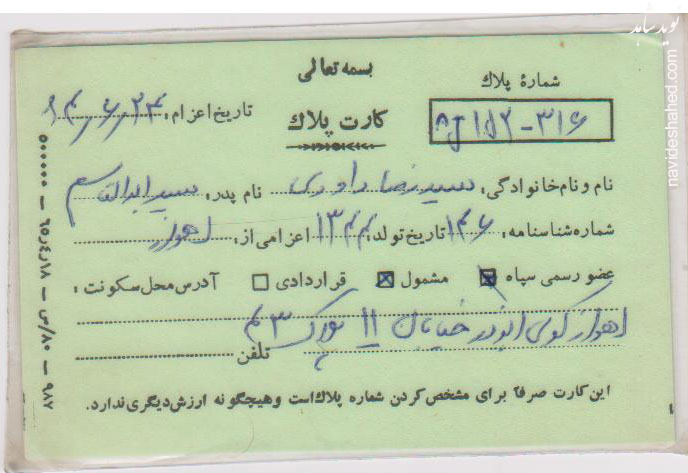 نوید شاهد
navideshahed.com
بسمه تعالی
شمارهٔ پلاک
316-152
کارت پلاک
تاریخ اعزام:
نام و نام خانوادگی: سید رضا داوری نام پدر: سید ابوالقاسم
شماره شناسنامه: ۱۴۶ تاریخ تولد: ۱۳۴۴ اعزامی از: اهواز
عضو رسمی سپاه مشمول قراردادی آدرس محل سکونت:
اهواز کوی ابوذر خیابان ۱۱ پلاک
تلفن
این کارت صرفاً برای مشخص کردن شماره پلاک است و هیچگونه ارزش دیگری ندارد.
۹۸۷ — ۸۰/س — ۶۵٫۴٫۱۸ — ۵۰۰۰۰۰